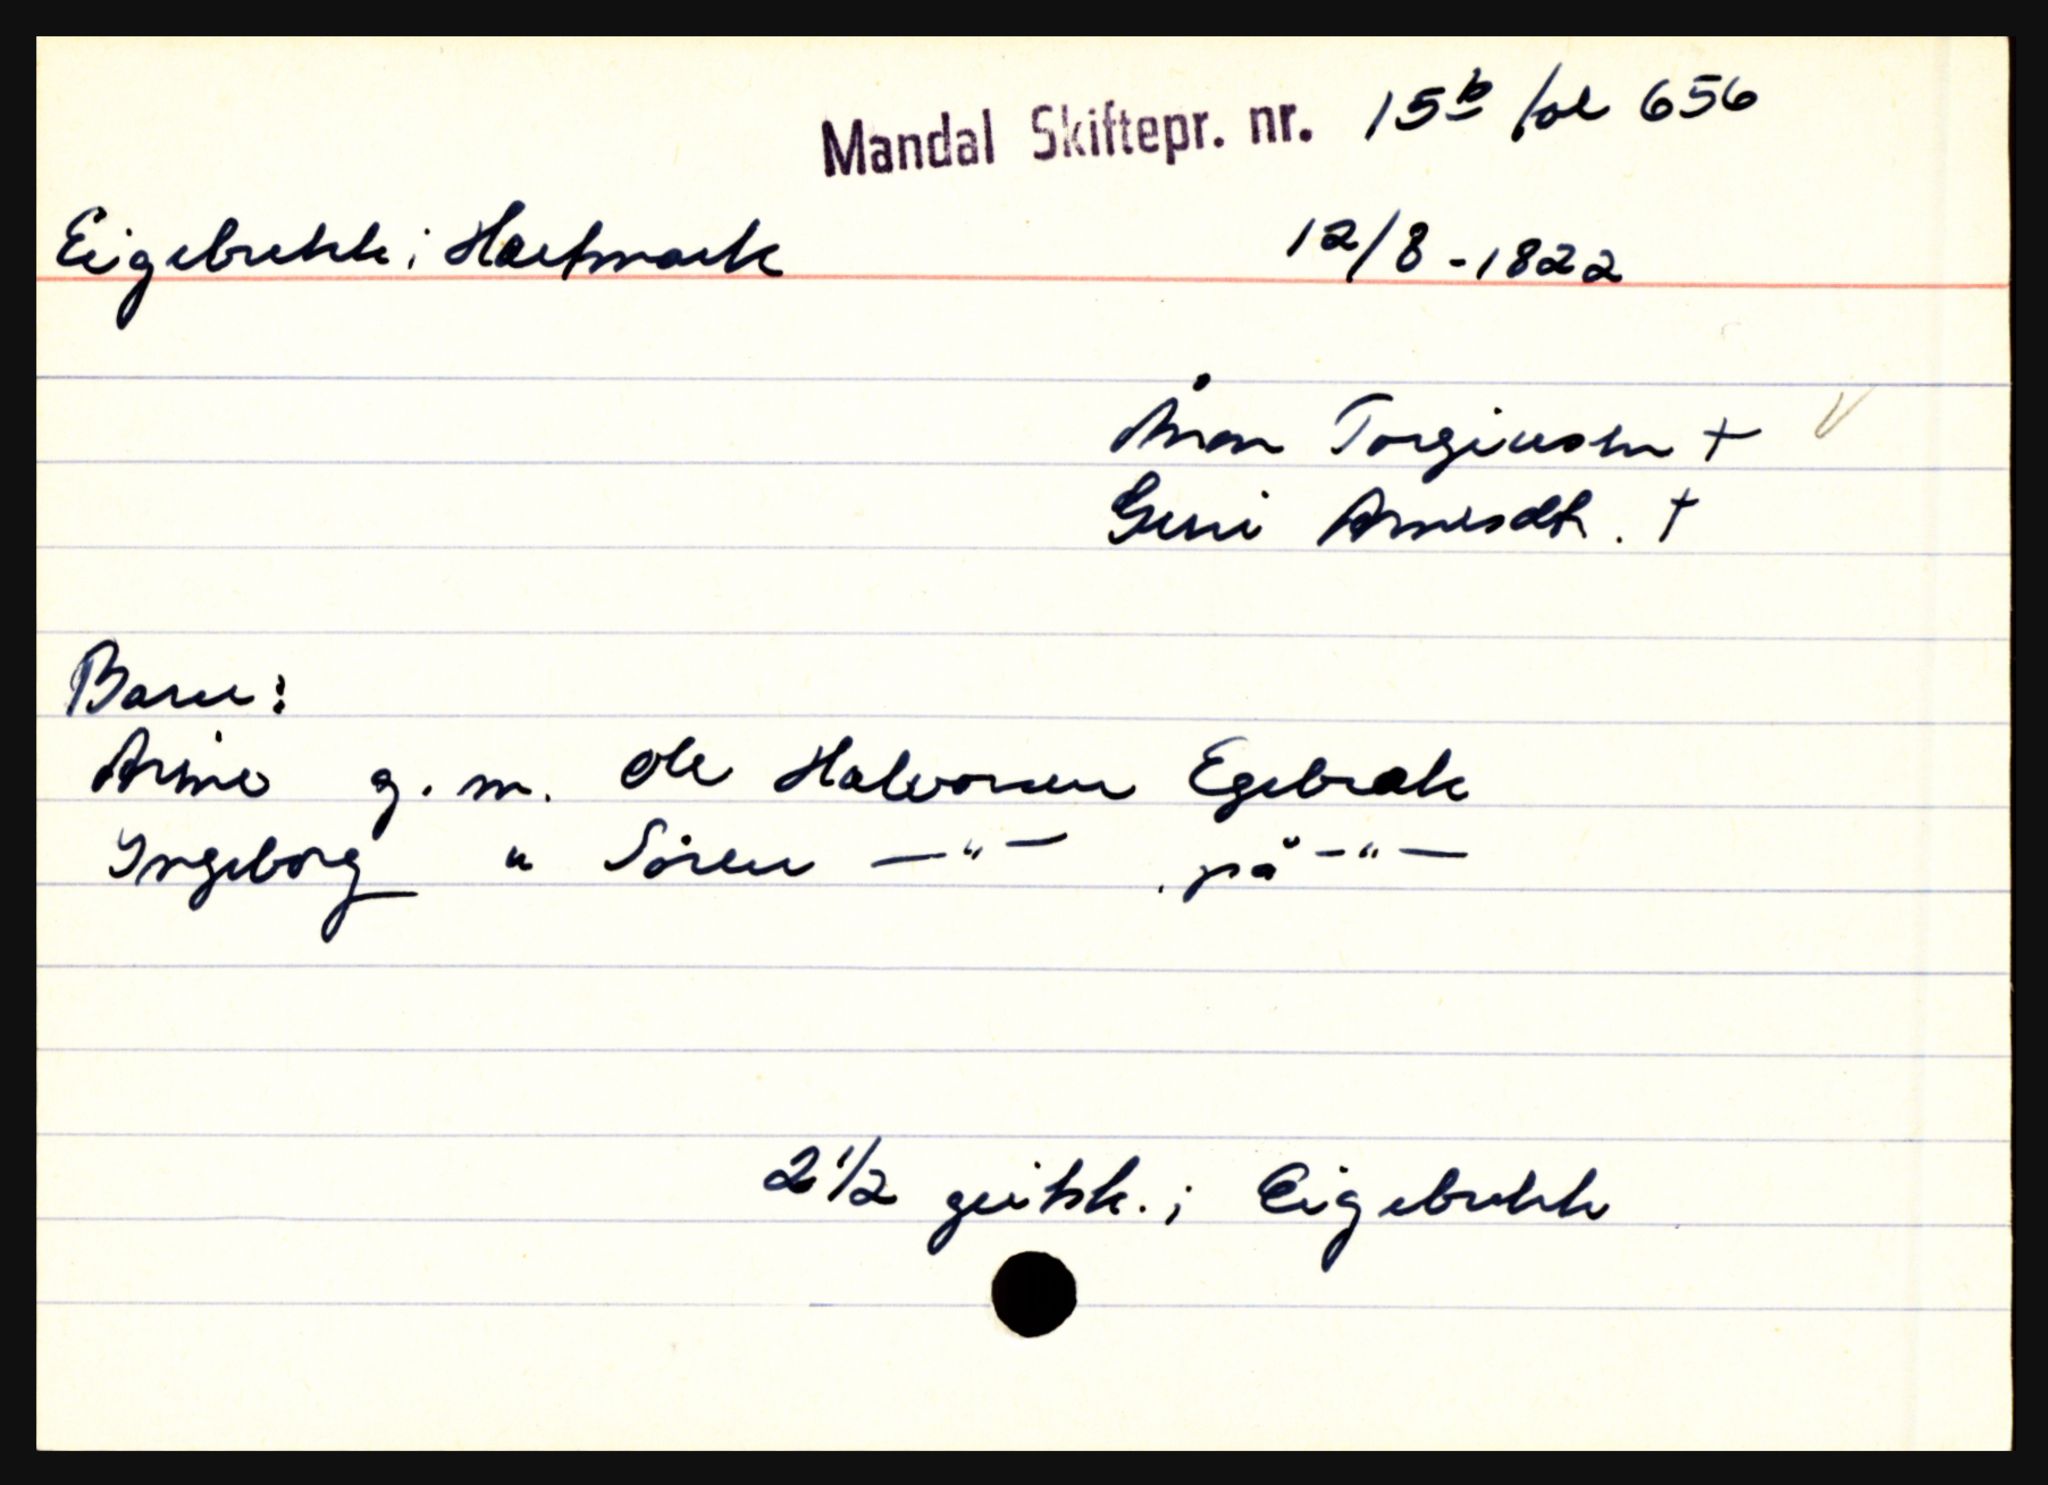 Mandal Skiftepr. nr. 15b fol 656
Eigebrekk i Hartmark 12/8-1822
Ånon Torgiussen +
Guri Arnesdtr. †
Barn:
g. m. Ole Halvorsen Egebrek
Ingeborg " Sören —"— på —"—
2 1/2 geitsk. i Eigebrekk